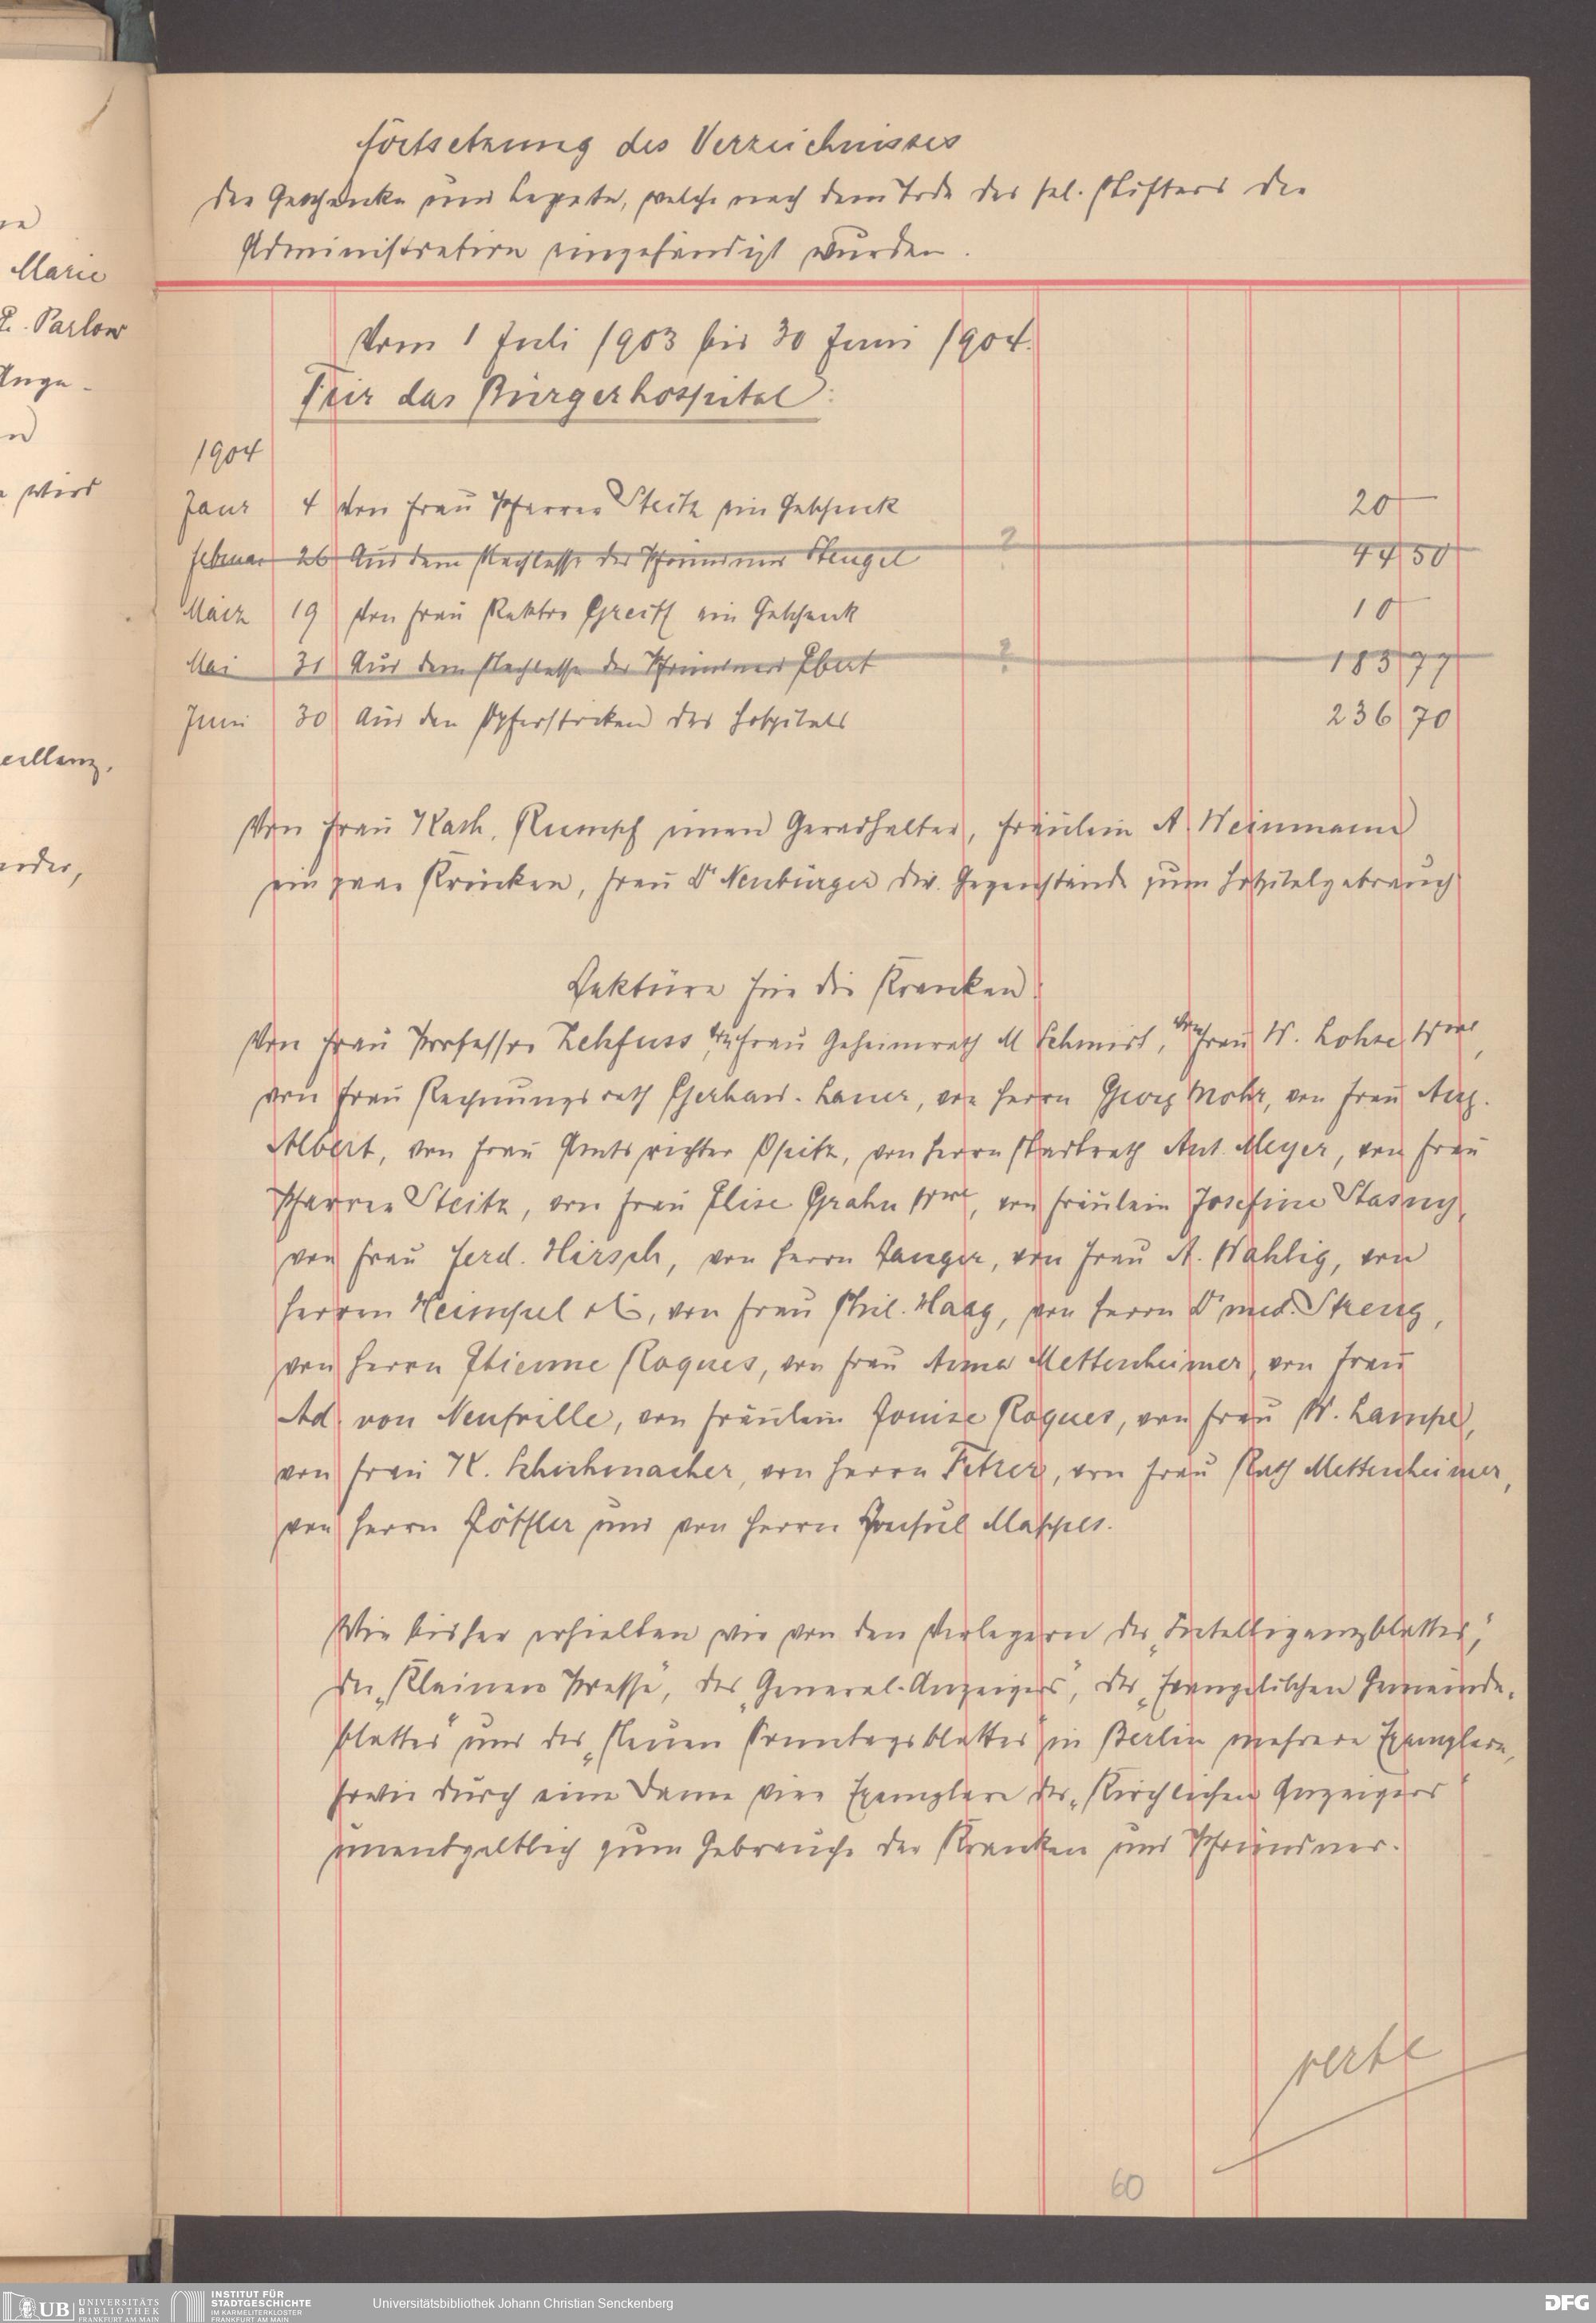 Fortsetzung des Verzeichnisses
der Geschenke und Legate, welche nach dem Tode des sel. Stifters der
Administration eingehändigt wurden.
Vom 1 Juli 1903 bis 30 Juni 1904.
Für das Bürgerhospital:
1904
Janr 4 Von Frau Pfarrer Steitz ein Geschenk 20 —
Februar 26 Aus dem Nachlasse des Pfründners Stengel ? 44 50
März 19 Von Frau Rektor Greiff ein Geschenk 10 —
Mai 31 Aus dem Nachlasse des Pfründners Ebert ? 183 77
Juni 30 Aus den Opferstöcken des Hospitals 236 70
Von Frau Kath. Rumpf einen Geradhalter, Fräulein A. Weinmann
ein paar Krücken, Frau Dr Neubürger div. Gegenstände zum Hospitalgebrauch
Lektüre für die Kranken:
Von Frau Professor Zehfuss, von Frau Geheimrath M Schmidt, von Frau W. Lohse Wwe,
von Frau Rechnungsrath Gerhard-Lauer, von Herrn Georg Mohr, von Frau Aug.
Albert, von Frau Amtsrichter Opitz, von Herrn Stadtrath Ant. Meyer, von Frau
Pfarrer Steitz, von Frau Elise Grahn Wwe, von Fräulein Josefine Stasny,
von Frau Ferd. Hirsch, von Herrn Langer, von Frau A. Wahlig, von
Herren Heimpel &amp; C, von Frau Phil. Haag, von Herrn Dr med. Streng,
von Herrn Etienne Roques, von Frau Anna Mettenheimer, von Frau
Ad. von Neufville, von Fräulein Louise Roques, von Frau W. Lampe,
von Frau K. Schuhmacher, von Herrn Fetzer, von Frau Rath Mettenheimer,
von Herrn Löffler und von Herrn Consul Mappes.
Wie bisher erhielten wir von den Verlegern des „Intelligenzblattes“,
der „Kleinen Presse“, des „General-Anzeigers“, des „Evangelischen Gemeinde-
blattes“ und des „Neuen Sonntagsblattes“ in Berlin mehrere Exemplare,
sowie durch eine Dame vier Exemplare des „Kirchlichen Anzeigers“
unentgeltlich zum Gebrauche der Kranken und Pfründner.
verte
60
Marie
Parlow
wird
UB UNIVERSITÄTS
BIBLIOTHEK
FRANKFURT AM MAIN
INSTITUT FÜR
STADTGESCHICHTE
IM KARMELITERKLOSTER
FRANKFURT AM MAIN
Universitätsbibliothek Johann Christian Senckenberg
DFG